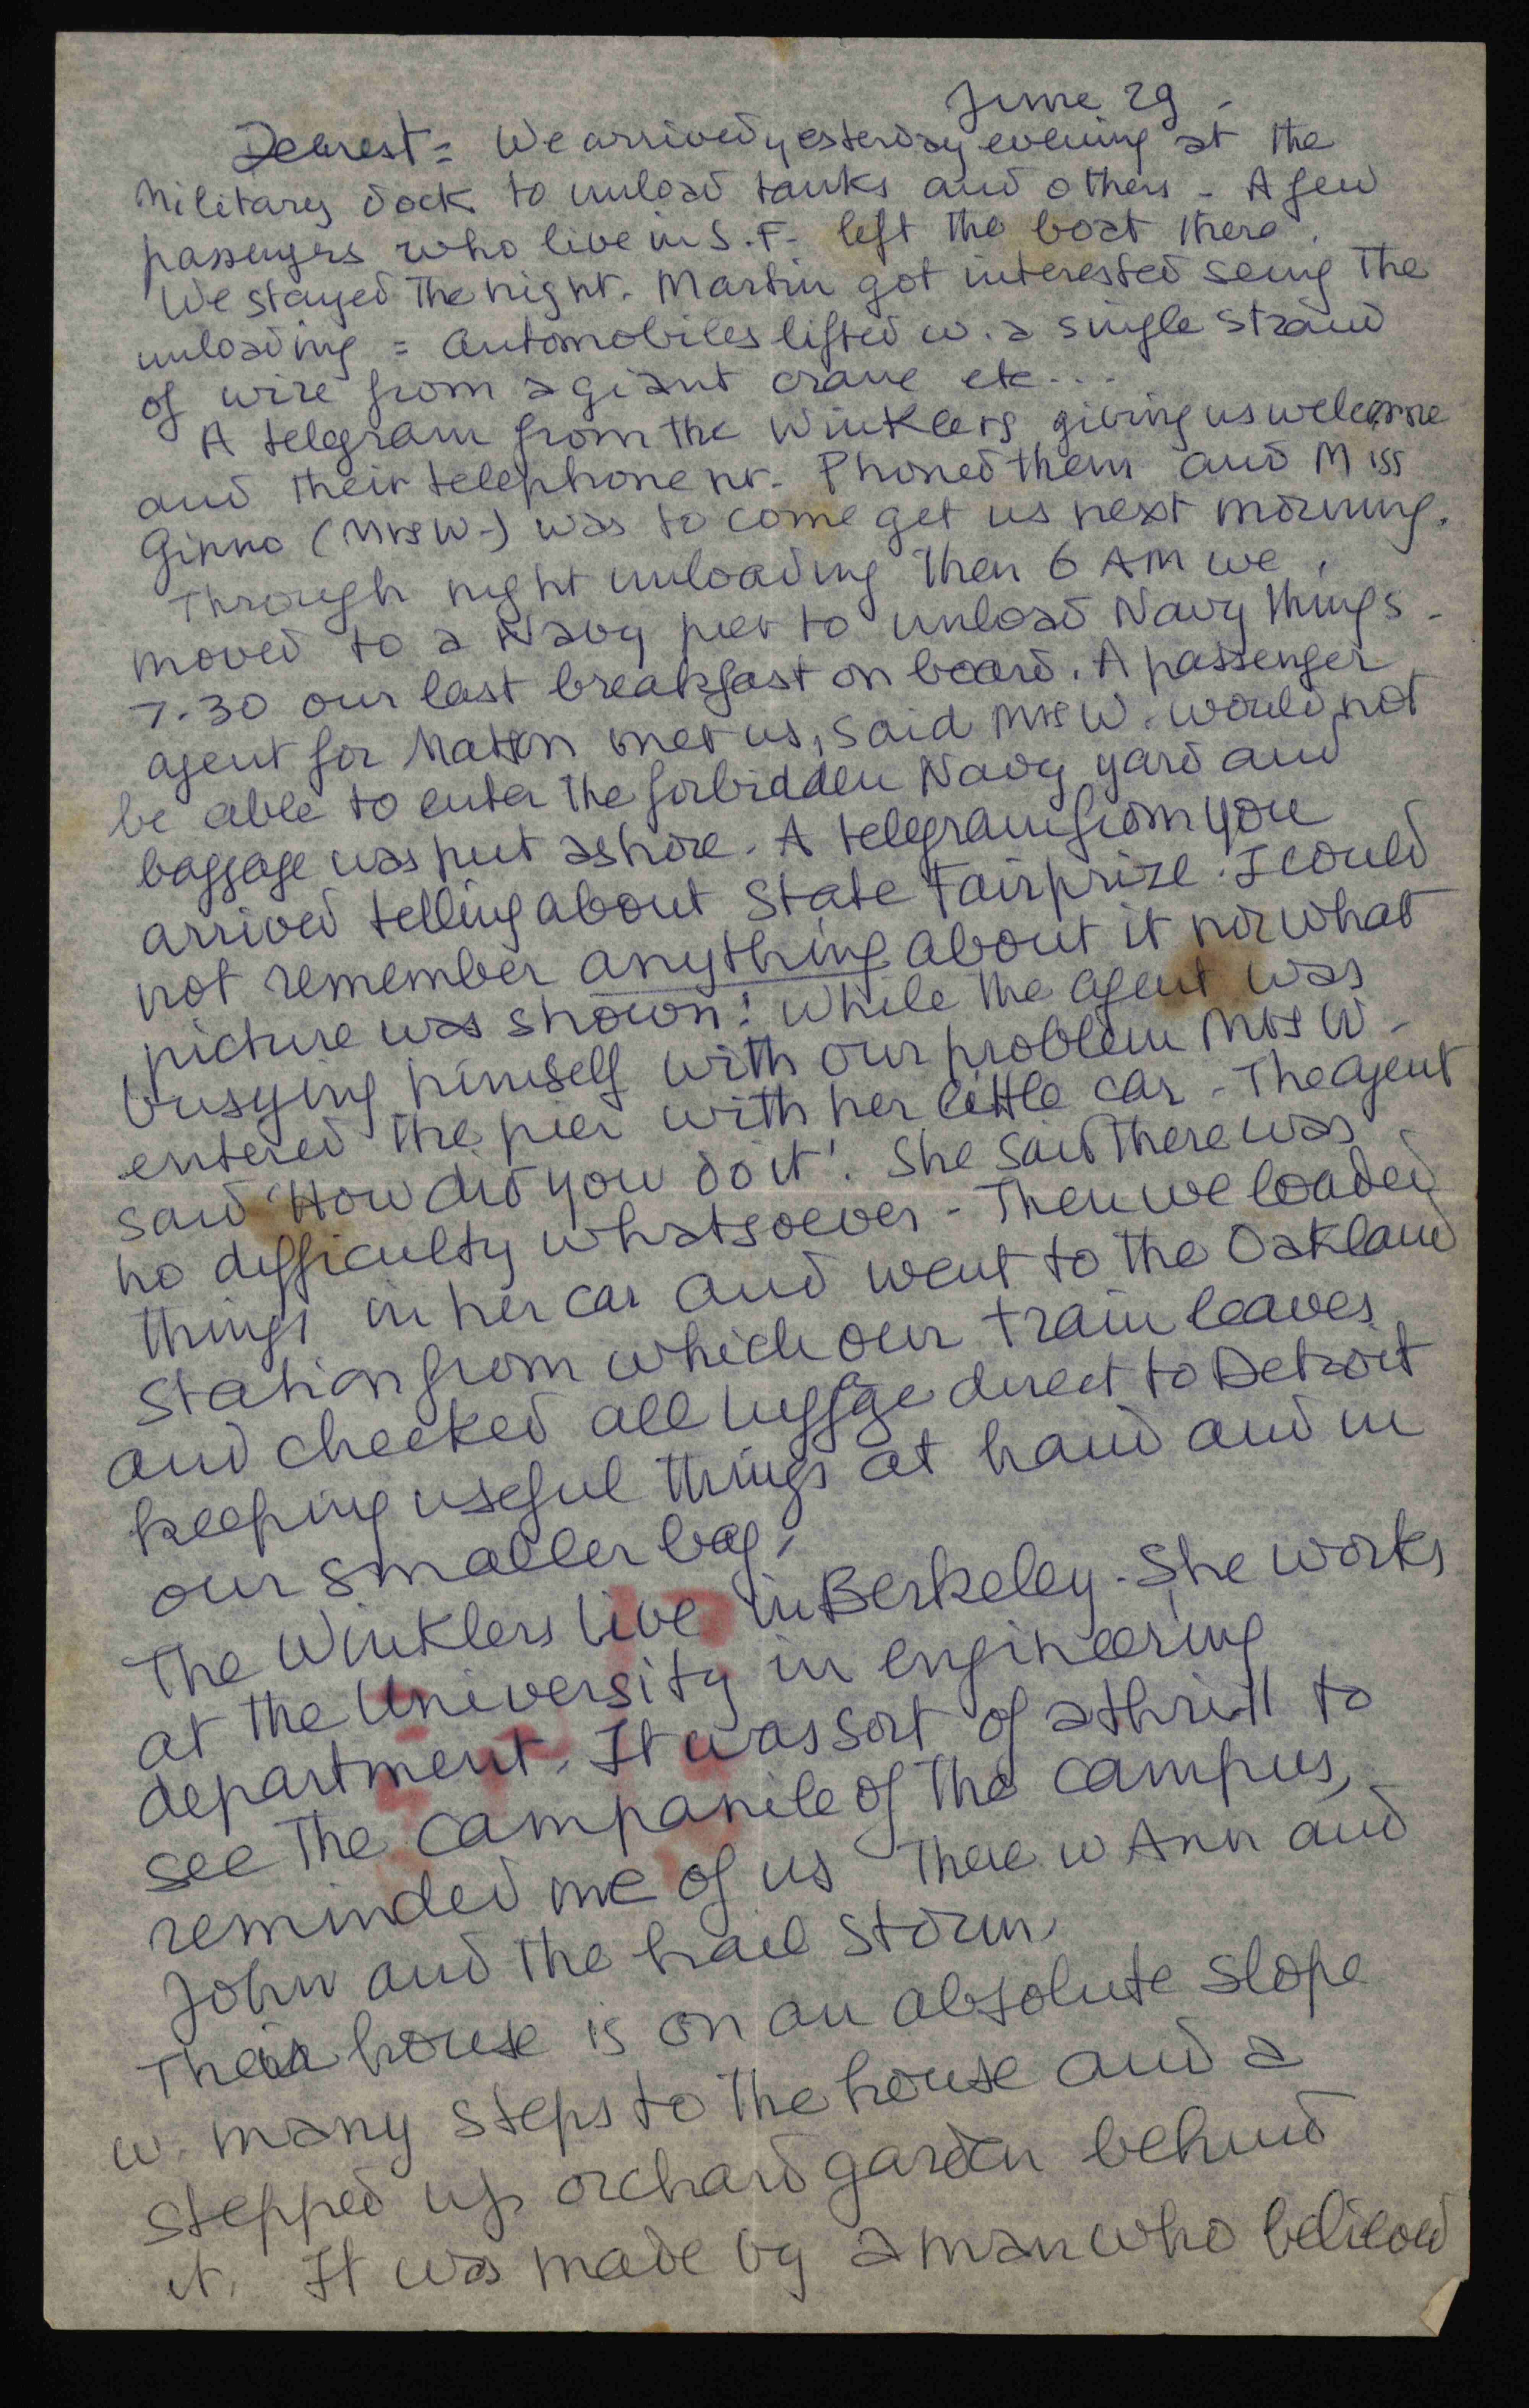 June 29 -
Dearest = We arrived yesterday evening at the
Military dock to unload tanks and others - A few
passengers who live in S.F. left the boat there.
We stayed the night. Martin got interested seing the
unloading = automobiles lifted w. a single strand
of wire from a giant crane etc...
A telegram from the Winklers giving us welcome
and their telephone nr. Phoned them and Miss
Ginno (Mrs W-) was to come get us next morning.
Through night unloading then 6 AM we
moved to a Navy pier to unload Navy things -
7.30 our last breakfast on board. A passenger
agent for Matson met us, said Mrs W. would not
be able to enter the forbidden Navy yard and
baggage was put ashore. A telegram from you
arrived telling about State Fair prize. I could
not remember anything about it nor what
picture was shown! While the agent was
busying himself with our problem Mrs W -
entered the pier with her little car - The agent
said 'How did you do it'. She said there was
no difficulty whatsoever - Then we loaded
things in her car and went to the Oakland
Station from which our train leaves
and checked all luggage direct to Detroit
keeping useful things at hand and in
our smaller bag.
The Winklers live in Berkeley - She works
at the University in engineering
department. It was sort of a thrill to
see the campanile of the campus,
reminded me of us there w Ann and
John and the hail storm
Their house is on an absolute slope
w. many steps to the house and a
stepped up orchard garden behind
it. It was made by a man who believed